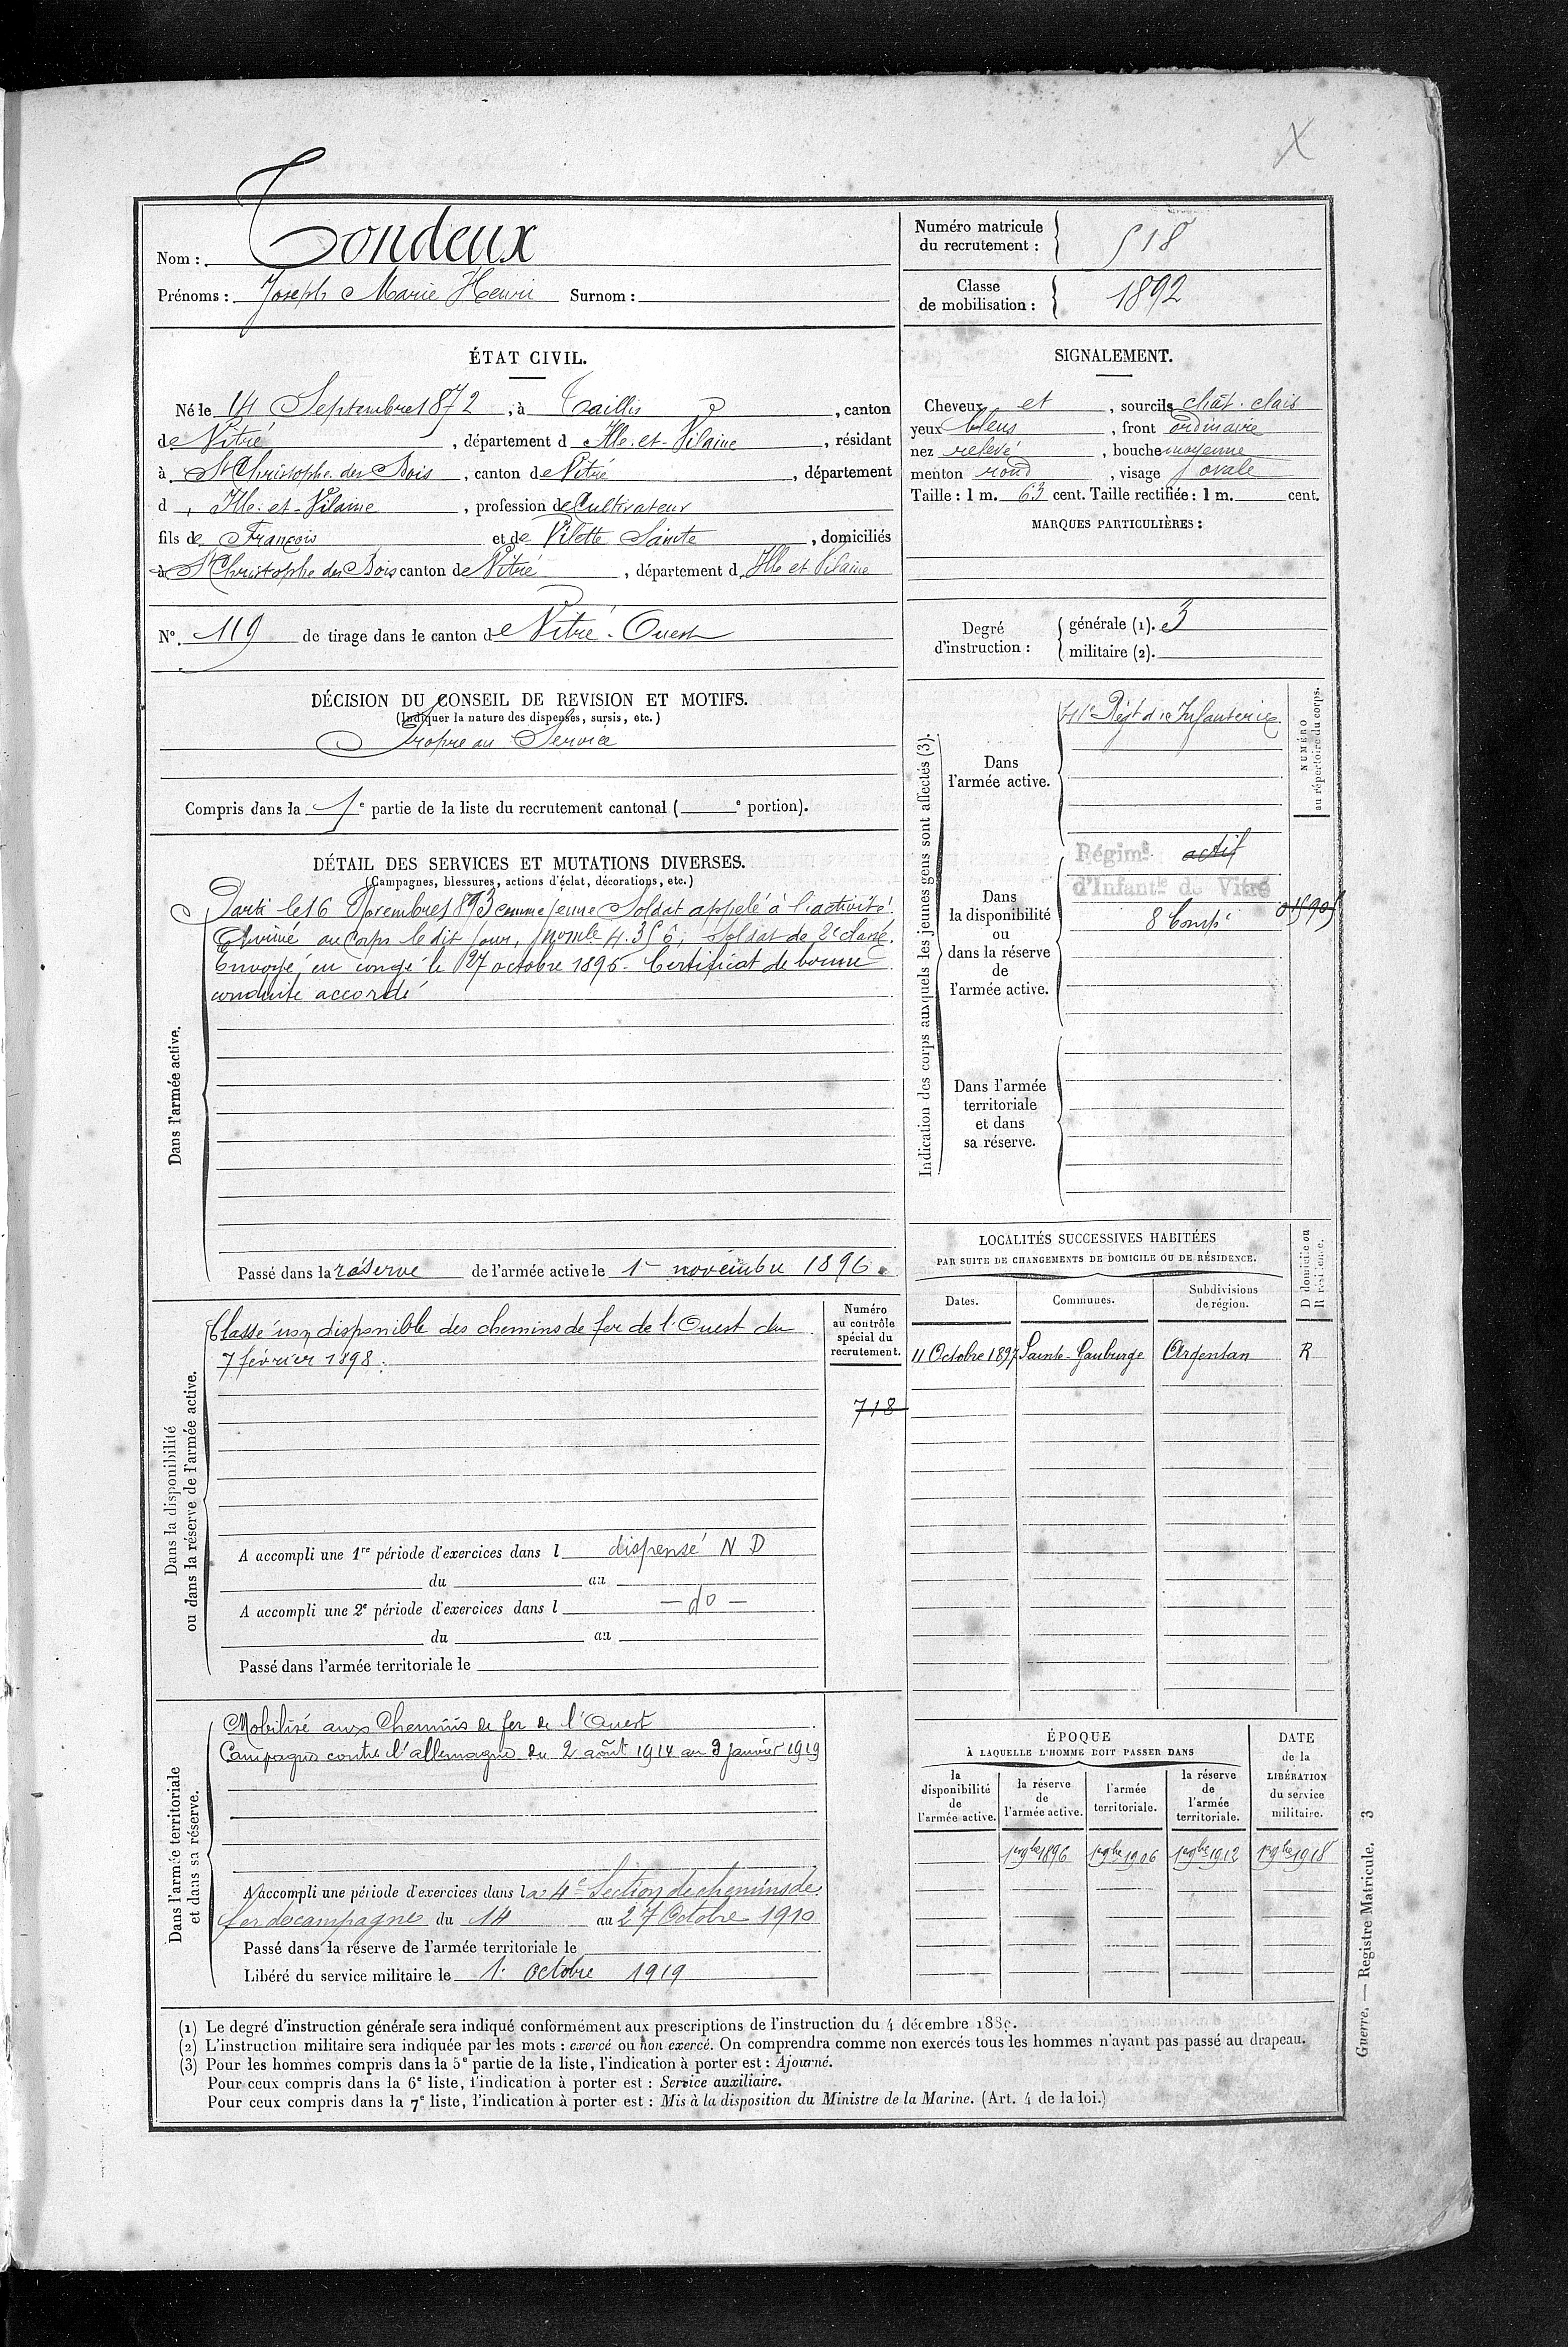 X
Nom : Tondeux
Prénoms : Joseph Marie Henri Surnom :
Numéro matricule du recrutement : 518
Classe de mobilisation : 1892
ÉTAT CIVIL.
Né le 14 Septembre 1872, à Taillis, canton
de Vitré, département d Ille-et-Vilaine, résidant
à St Christophe des Bois, canton de Vitré, département
d Ille-et-Vilaine, profession de Cultivateur
fils de François et de Vilette Sainte, domiciliés
à St Christophe des Bois canton de Vitré, département d Ille et Vilaine
N° 119 de tirage dans le canton de Vitré-Ouest
SIGNALEMENT.
Cheveux et, sourcils chât. clair
yeux bleus, front ordinaire
nez relevé, bouche moyenne
menton rond, visage ovale
Taille : 1 m. 63 cent. Taille rectifiée : 1 m. cent.
MARQUES PARTICULIÈRES :
Degré d'instruction : générale (1). 3
militaire (2).
DÉCISION DU CONSEIL DE REVISION ET MOTIFS.
(Indiquer la nature des dispenses, sursis, etc.)
Propre au Service
Compris dans la 1e partie de la liste du recrutement cantonal ( e portion).
DÉTAIL DES SERVICES ET MUTATIONS DIVERSES.
(Campagnes, blessures, actions d'éclat, décorations, etc.)
Dans l'armée active.
Parti le 16 Novembre 1893 comme jeune Soldat appelé à l'activité
Arrivé au Corps le dit jour, immle 4.356; Soldat de 2e classe.
Envoyé en congé le 27 octobre 1895. Certificat de bonne
conduite accordé
Passé dans la réserve de l'armée active le 1er novembre 1896.
Indication des corps auxquels les jeunes gens sont affectés (3).
NUMÉRO au répertoire du corps.
Dans l'armée active.
41e Régt d'Infanterie
Dans la disponibilité ou dans la réserve de l'armée active.
Régimt actif
d'Infantie de Vitré
8 Compie
01590
Dans l'armée territoriale et dans sa réserve.
LOCALITÉS SUCCESSIVES HABITÉES
PAR SUITE DE CHANGEMENTS DE DOMICILE OU DE RÉSIDENCE.
Dates. Communes. Subdivisions de région. D domicile ou R résidence.
11 Octobre 1897 Sainte-Gauburge Argentan R
Dans la disponibilité ou dans la réserve de l'armée active.
Numéro au contrôle spécial du recrutement.
Classé non disponible des chemins de fer de l'Ouest du
7 février 1898.
718
A accompli une 1re période d'exercices dans l dispensé N D
du au
A accompli une 2e période d'exercices dans l — do —
du au
Passé dans l'armée territoriale le
Dans l'armée territoriale et dans sa réserve.
Mobilisé aux Chemins de fer de l'Ouest
Campagne contre l'allemagne du 2 août 1914 au 9 janvier 1919
A accompli une période d'exercices dans la 4e Section de chemins de
fer de campagne du 14 au 27 Octobre 1910
Passé dans la réserve de l'armée territoriale le
Libéré du service militaire le 1er Octobre 1919
ÉPOQUE
À LAQUELLE L'HOMME DOIT PASSER DANS
la disponibilité de l'armée active. la réserve de l'armée active. l'armée territoriale. la réserve de l'armée territoriale. DATE de la LIBÉRATION du service militaire.
1er 9bre 1896 1er 9bre 1906 1er 9bre 1912 1er 9bre 1918
(1) Le degré d'instruction générale sera indiqué conformément aux prescriptions de l'instruction du 4 décembre 1889.
(2) L'instruction militaire sera indiquée par les mots : exercé ou non exercé. On comprendra comme non exercés tous les hommes n'ayant pas passé au drapeau.
(3) Pour les hommes compris dans la 5e partie de la liste, l'indication à porter est : Ajourné.
Pour ceux compris dans la 6e liste, l'indication à porter est : Service auxiliaire.
Pour ceux compris dans la 7e liste, l'indication à porter est : Mis à la disposition du Ministre de la Marine. (Art. 4 de la loi.)
Guerre. — Registre Matricule. 3